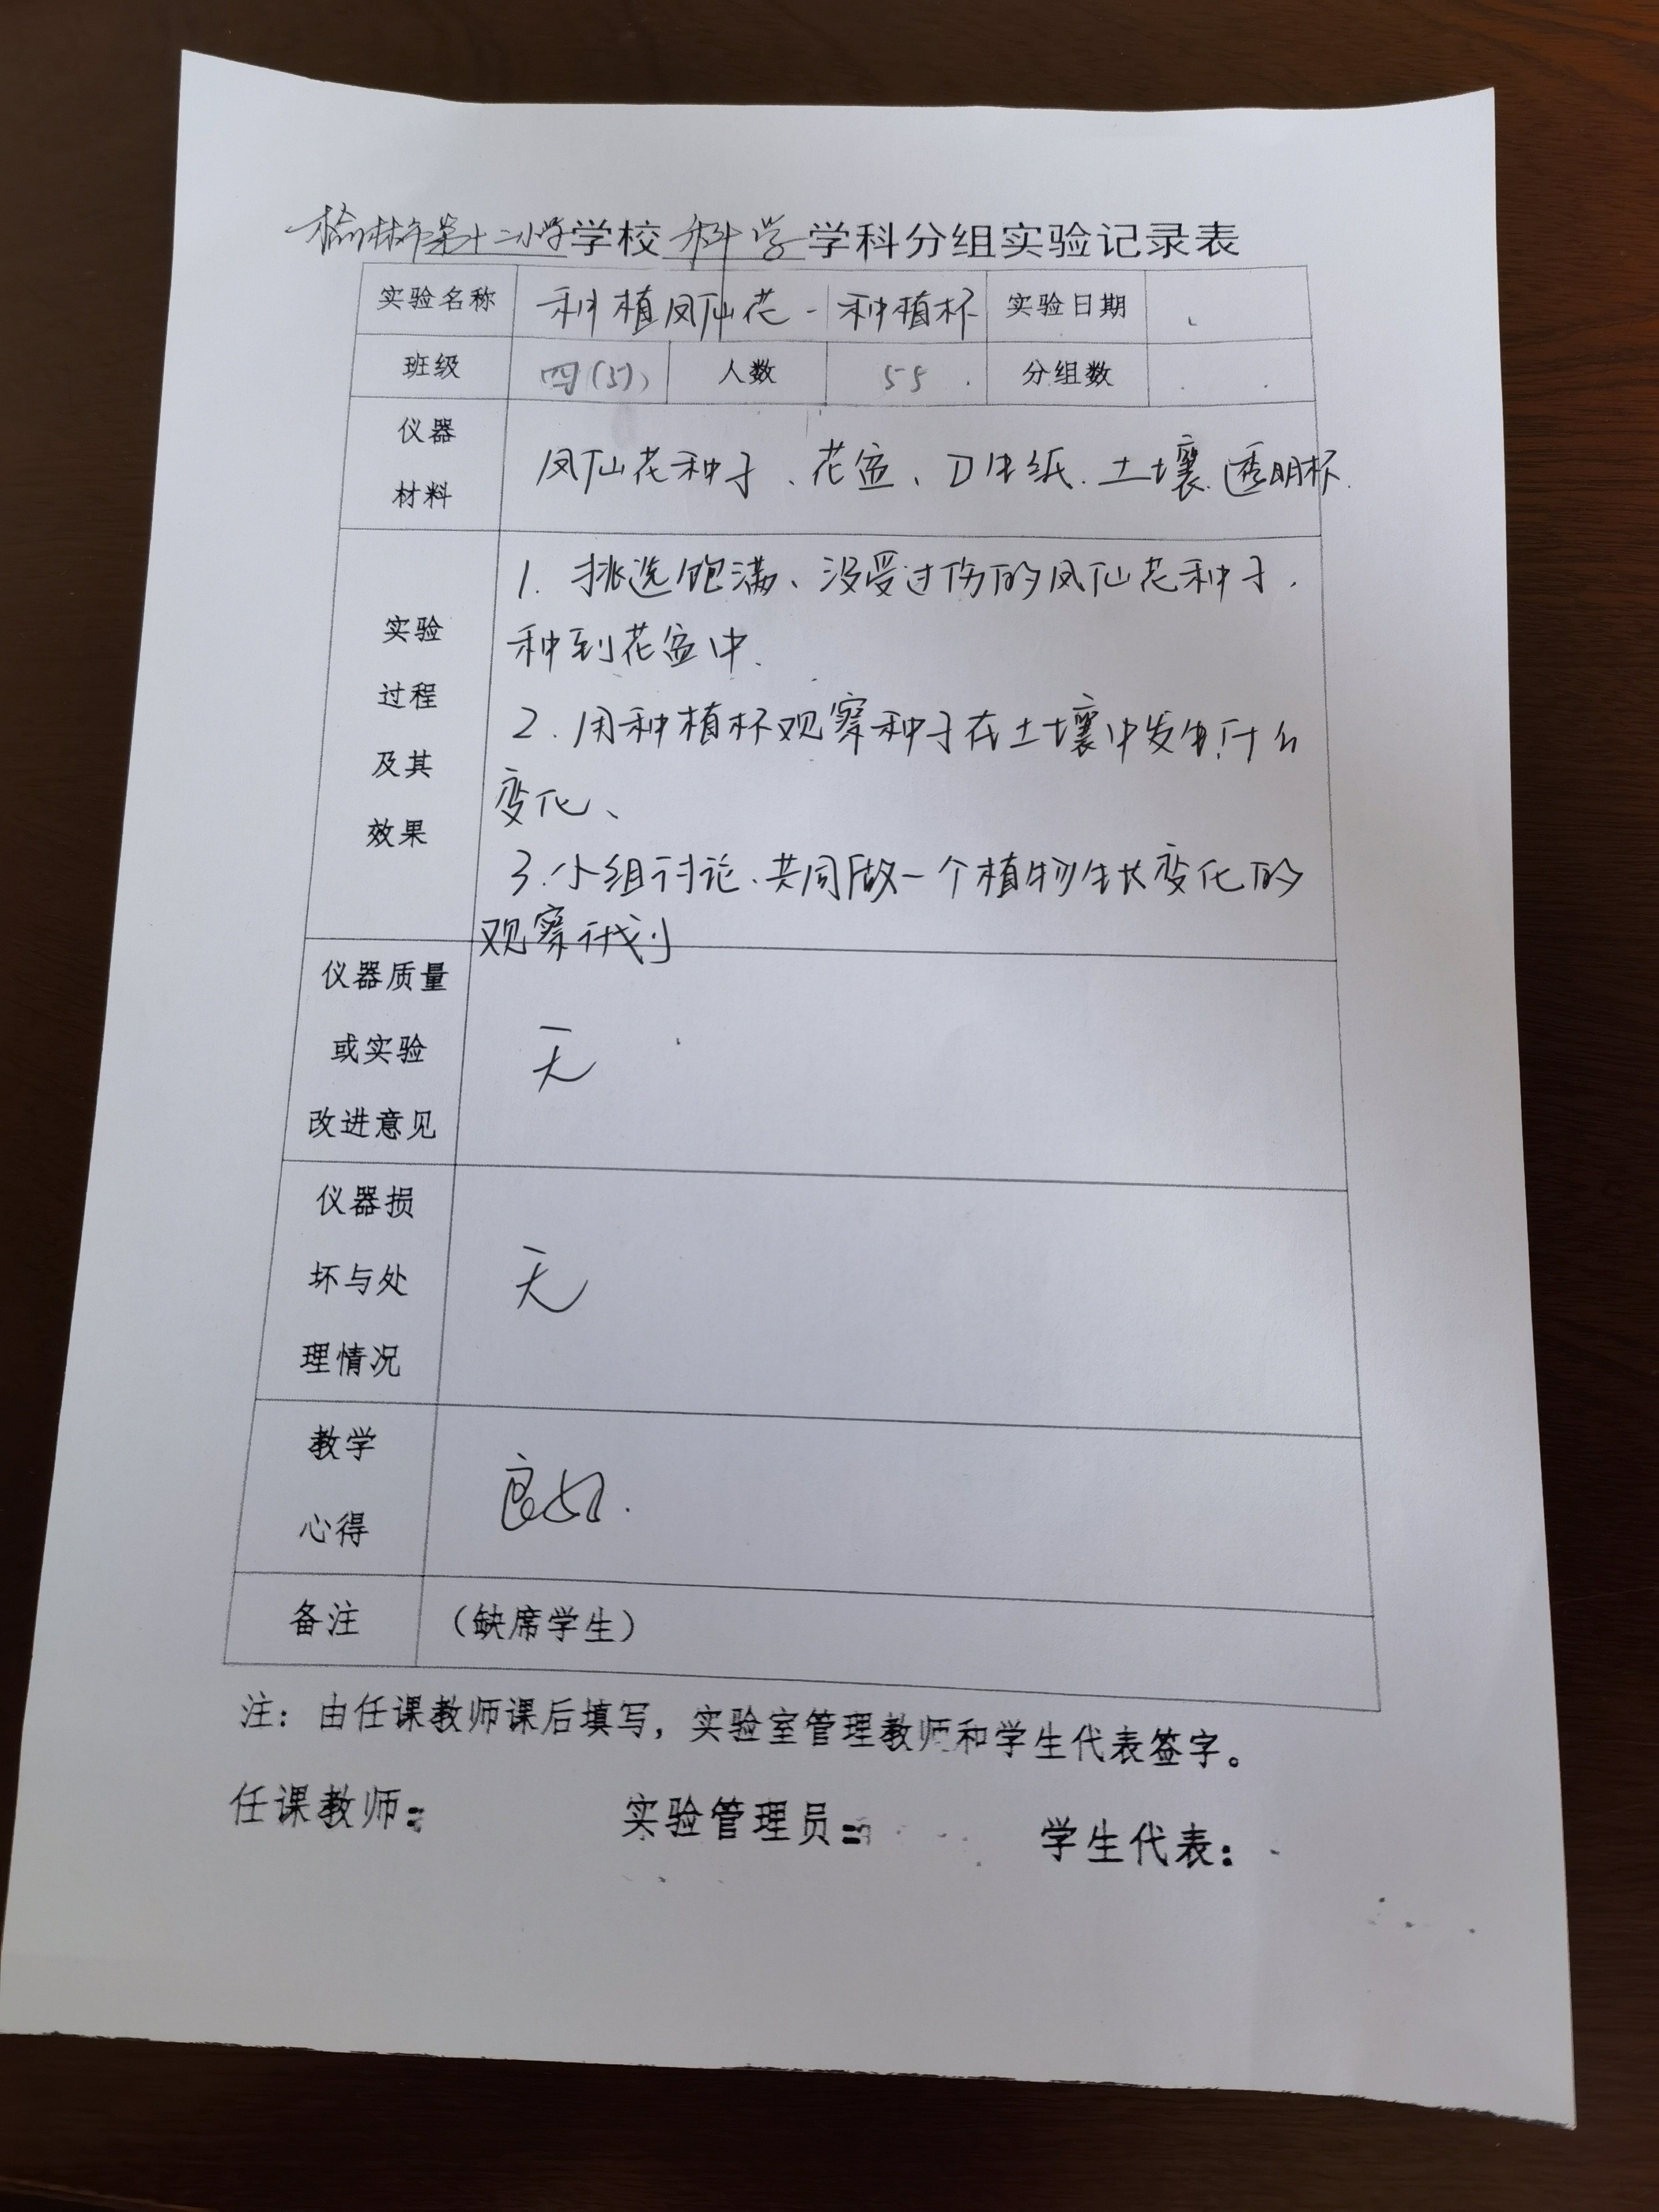 榆林市第十二小学学校科学学科分组实验记录表
实验名称 种植凤仙花-种植杯 实验日期
班级 四(5) 人数 55 分组数
仪器
材料
凤仙花种子、花盆、卫生纸、土壤、透明杯.
实验
过程
及其
效果
1. 挑选饱满、没受过伤的凤仙花种子,
种到花盆中.
2. 用种植杯观察种子在土壤中发生什么
变化、
3.小组讨论、共同做一个植物生长变化的
观察计划
仪器质量
或实验
改进意见
无
仪器损
坏与处
理情况
无
教学
心得
良好.
备注 （缺席学生）
注：由任课教师课后填写，实验室管理教师和学生代表签字。
任课教师： 实验管理员： 学生代表：